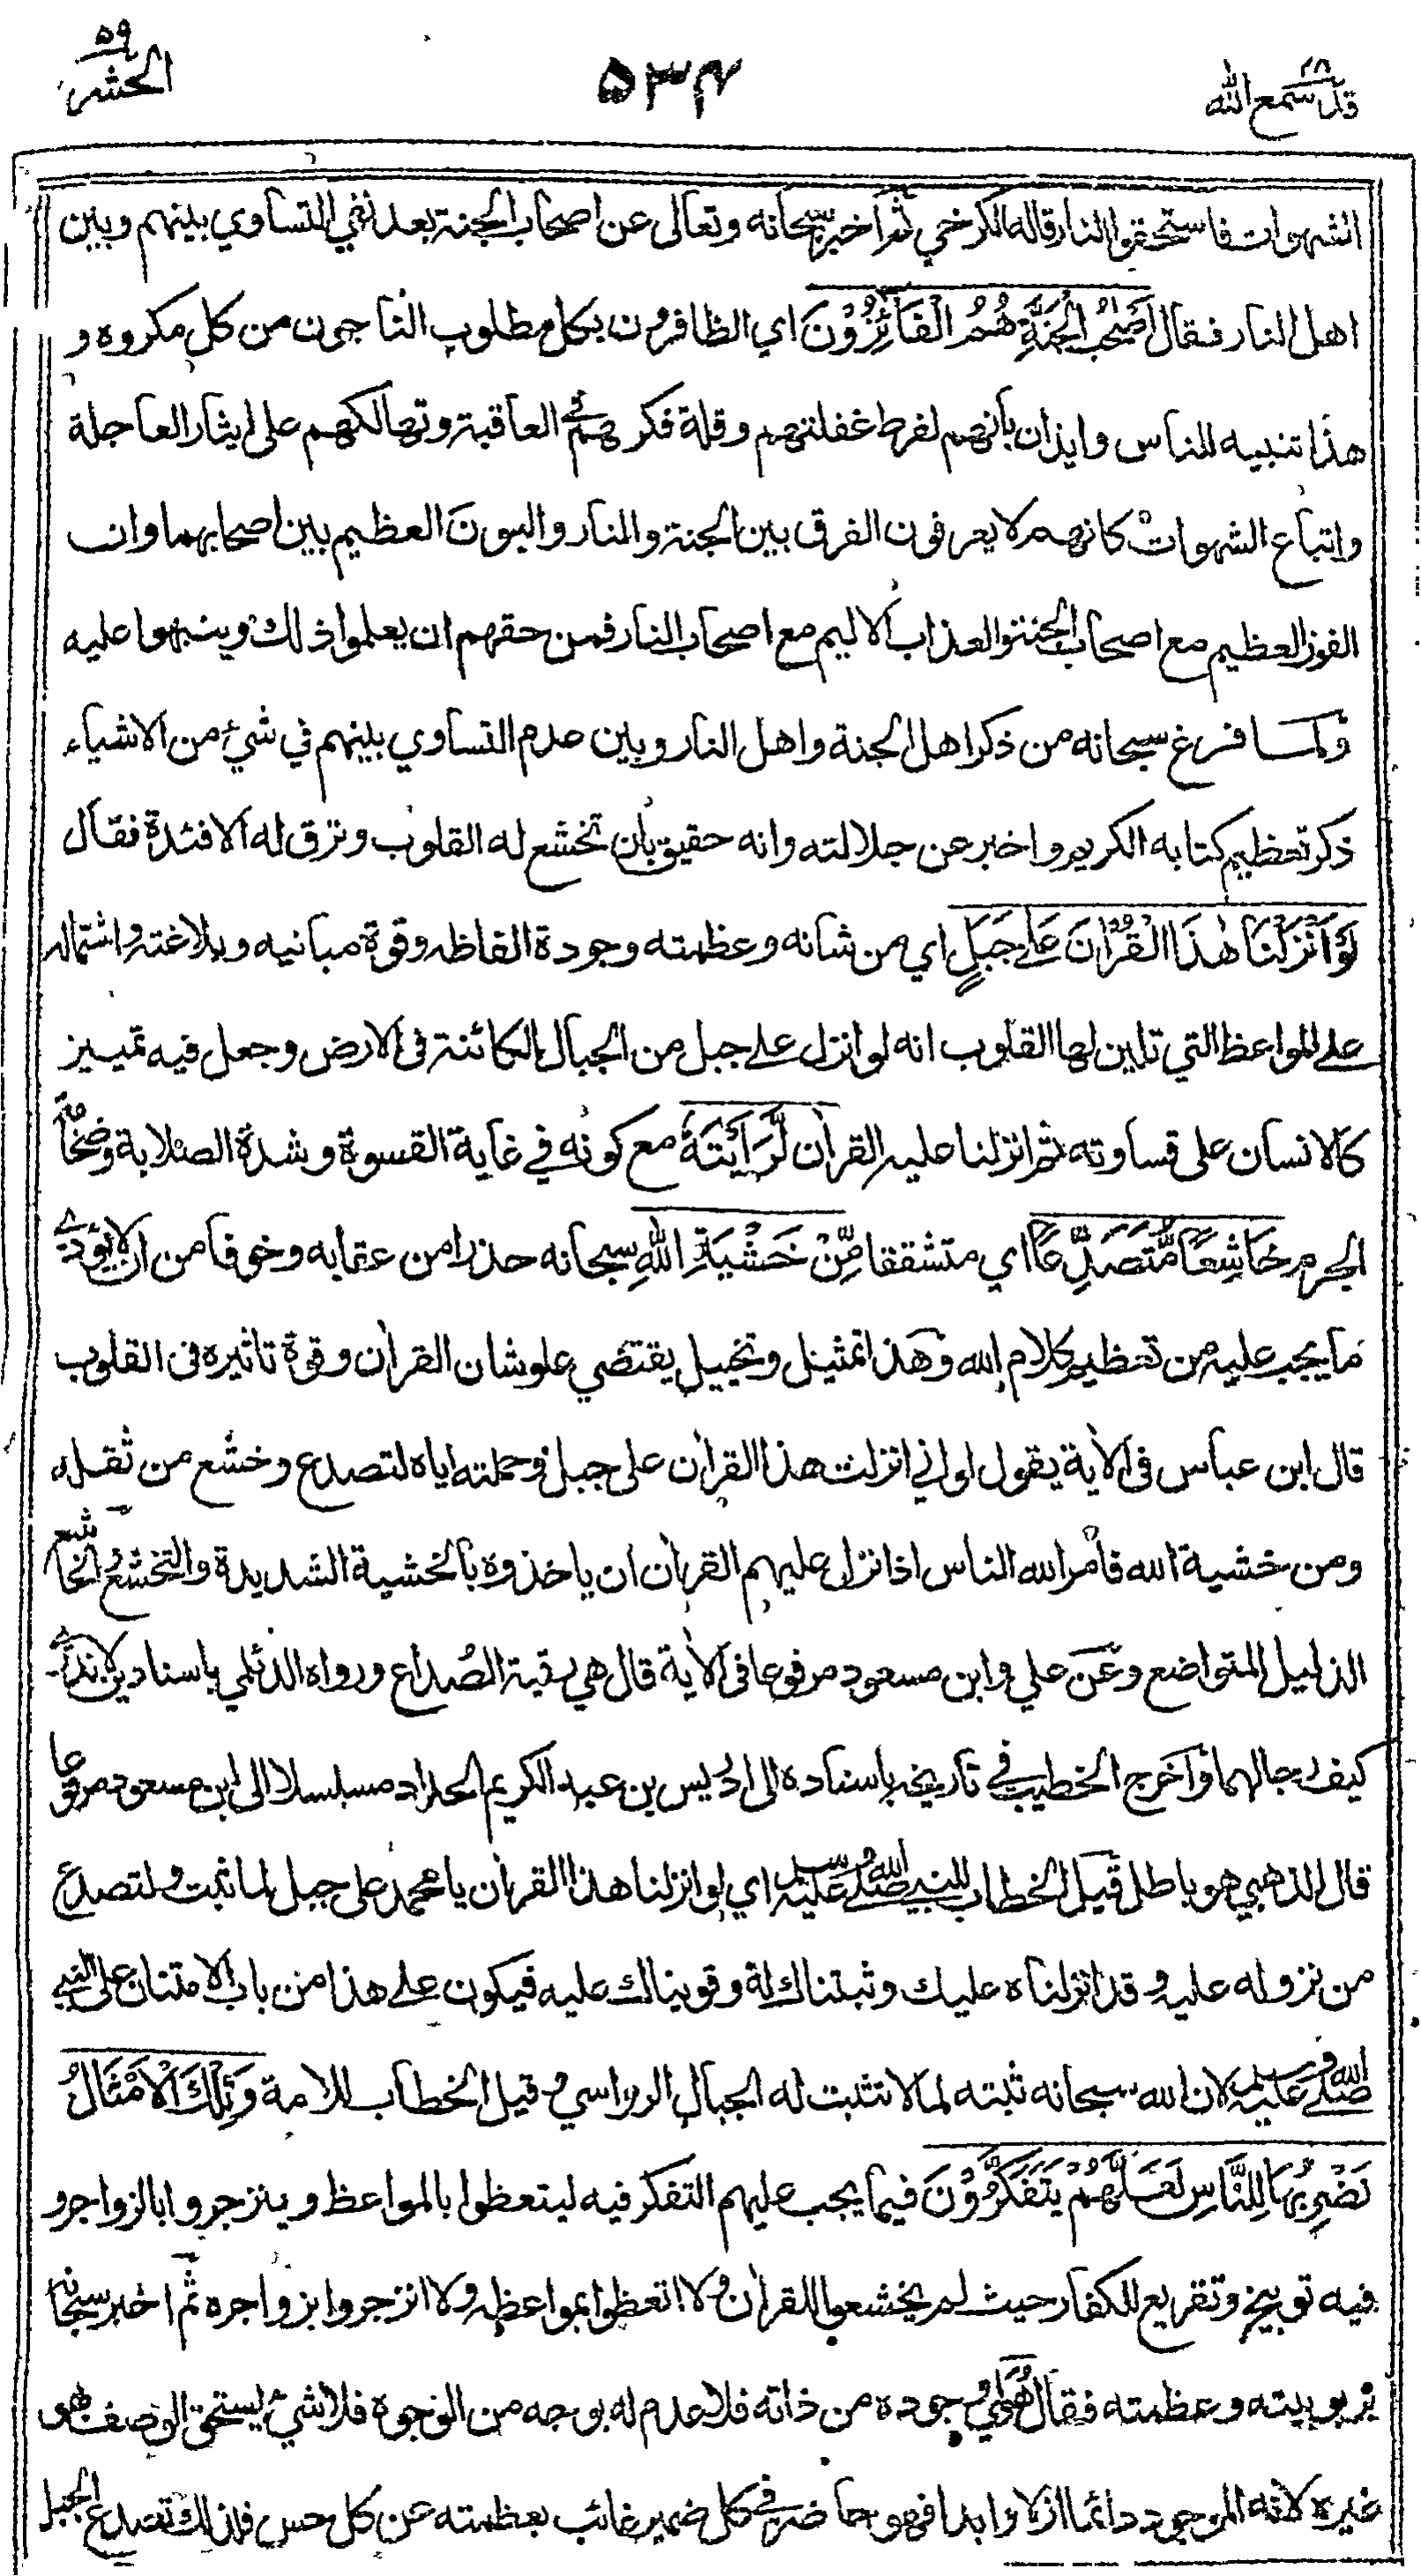 قد سمع الله ٢٨
٥٣٤
الحشر ٥٩
الشهوات فاستحقوا النار قاله الكرخي ثم اخبر سبحانه وتعالى عن اصحاب الجنة بعد نفي التساوي بينهم وبين
اهل النار فقال اَصْحٰبُ الْجَنَّةِ هُمُ الْفَائِزُوْنَ اي الظافرون بكل مطلوب الناجون من كل مكروه و
هذا تنبيه للناس وايذان بانهم لفرط غفلتهم وقلة فكرهم في العاقبة وتهالكهم على ايثار العاجلة
واتباع الشهوات كانهم لا يعرفون الفرق بين الجنة والنار والبون العظيم بين اصحابهما وان
الفوز العظيم مع اصحاب الجنة والعذاب الاليم مع اصحاب النار فمن حقهم ان يعلموا ذلك وينبهوا عليه
ولما فرغ سبحانه من ذكر اهل الجنة واهل النار وبين عدم التساوي بينهم في شيء من الاشياء
ذكر تعظيم كتابه الكريم واخبر عن جلالته وانه حقيق بان تخشع له القلوب وترق له الافئدة فقال
لَوْ اَنْزَلْنَا هٰذَا الْقُرْاٰنَ عَلٰے جَبَلٍ اي من شانه وعظمته وجودة الفاظه وقوة مبانيه وبلاغته واشتماله
علے المواعظ التي تلين لها القلوب انه لو انزل علے جبل من الجبال الكائنة فى الارض وجعل فيه تمييز
كالانسان على قساوته ثم انزلنا عليه القراٰن لَّرَاَيْتَهٗ مع كونه في غاية القسوة وشدة الصلابة وضخامة
الجرم خَاشِعًا مُّتَصَدِّعًا اي متشققا مِّنْ خَشْيَةِ اللّٰهِ سبحانه حذرا من عقابه وخوفا من ان لا يؤدي
ما يجب عليه من تعظيم كلام الله وهذا تمثيل وتخييل يقتضي علو شان القراٰن وقوة تاثيره فى القلوب
قال ابن عباس فى الاٰية يقول لو اني انزلت هذا القراٰن على جبل وحملته اياه لتصدع وخشع من ثقله
ومن خشية الله فأمر الله الناس اذا نزل عليهم القراٰن ان ياخذوه بالخشية الشديدة والتخشع الخاشع
الذليل المتواضع وعن علي وابن مسعود مرفوعا فى الاٰية قال هي رقية الصُداع ورواه الديلمي باسنادين لا ندري
كيف رجالهما واخرج الخطيب في تاريخه باسناده الى ادريس بن عبد الكريم الحداد مسلسلا الى ابن مسعود مرفوعا
قال الذهبي هو باطل قيل الخطاب للنبي صلى الله عليه وسلم اي لو انزلنا هذا القراٰن يا محمد على جبل لما ثبت ولتصدع
من نزوله عليه وقد انزلناه عليك وثبتناك له وقويناك عليه فيكون علے هذا من باب الامتنان على النبي
صلى الله عليه وسلم لان الله سبحانه ثبته لما لا تثبت له الجبال الرواسي وقيل الخطاب للامة وَتِلْكَ الْاَمْثَالُ
نَضْرِبُهَا لِلنَّاسِ لَعَلَّهُمْ يَتَفَكَّرُوْنَ فيما يجب عليهم التفكر فيه ليتعظوا بالمواعظ وينزجروا بالزواجر و
فيه توبيخ وتقريع للكفار حيث لم يخشعوا للقراٰن ولا اتعظوا بمواعظه ولا انزجروا بزواجره ثم اخبر سبحانه
بربوبيته وعظمته فقال هُوَ اي وجوده من ذاته فلا عدم له بوجه من الوجوه فلا شيء يستحق الوصف هو
غيره لانه الموجود دائما ازلا وابدا فهو حاضر في كل ضمير غائب بعظمته عن كل حس فلذلك تصدع الجبل